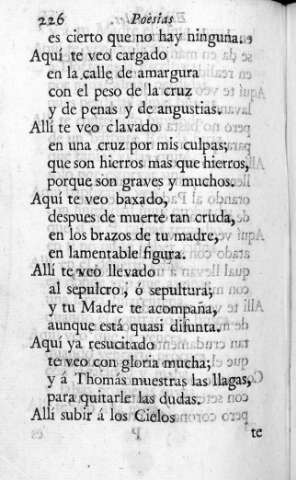 226 Poësias
es cierto que no hay ninguna.
Aquí te veo cargado
en la calle de amargura
con el peso de la cruz
y de penas y de angustias.
Allí te veo clavado
en una cruz por mis culpas;
que son hierros mas que hierros,
porque son graves y muchos.
Aquí te veo baxado,
despues de muerte tan cruda,
en los brazos de tu madre,
en lamentable figura.
Allí te veo llevado
al sepulcro, ó sepultura;
y tu Madre te acompaña,
aunque está quasi difunta.
Aquí ya resucitado
te veo con gloria mucha;
y á Thomás muestras las llagas,
para quitarle las dudas.
Allí subir á los Cielos
te